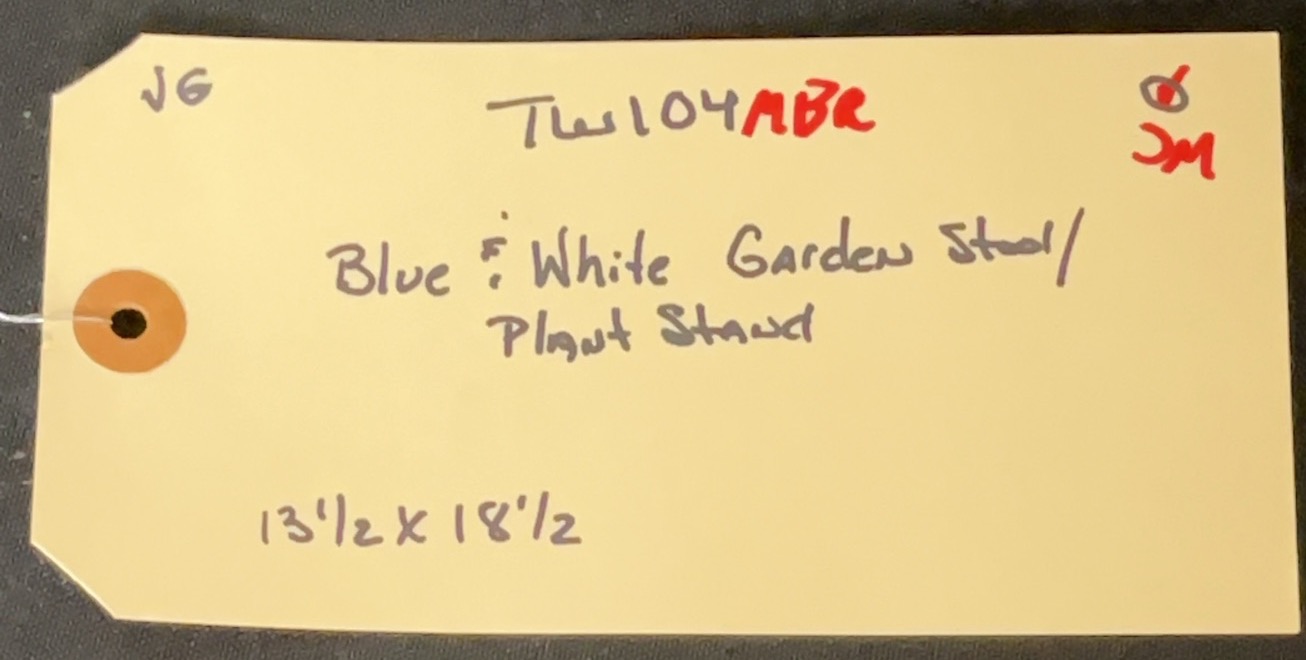 VG
TLW104MBR
JM
Blue & White Garden Stool/
Plant Stand
13 1/2 x 18 1/2